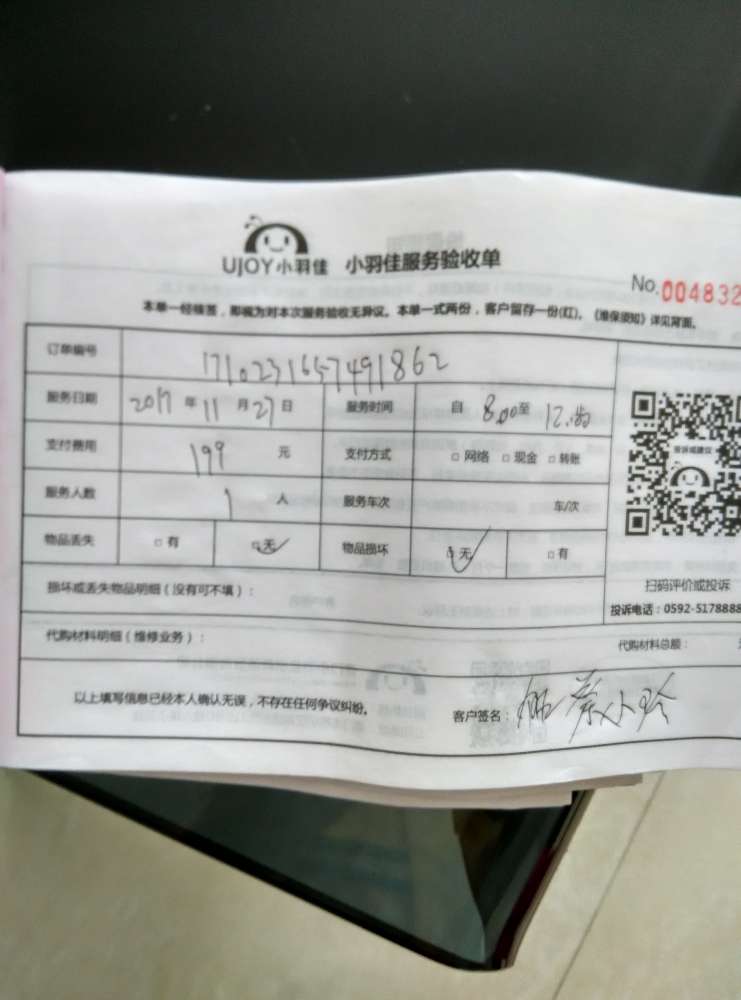 UJOY小羽佳 小羽佳服务验收单
No.004832
本单一经核签，即视为对本次服务验收无异议。本单一式两份，客户留存一份(红)。《维保须知》详见背面。
订单编号 1710231657491862
服务日期 2017年11月27日 服务时间 自 8.00至 12.00
支付费用 199 元 支付方式 □网络 □现金 □转账
服务人数 1 人 服务车次 车/次
物品丢失 □有 □无✓ 物品损坏 □无✓ □有
投诉或建议
扫码评价或投诉
投诉电话：0592-5178888
损坏或丢失物品明细（没有可不填）：
代购材料明细（维修业务）： 代购材料总额：
以上填写信息已经本人确认无误，不存在任何争议纠纷。 客户签名：